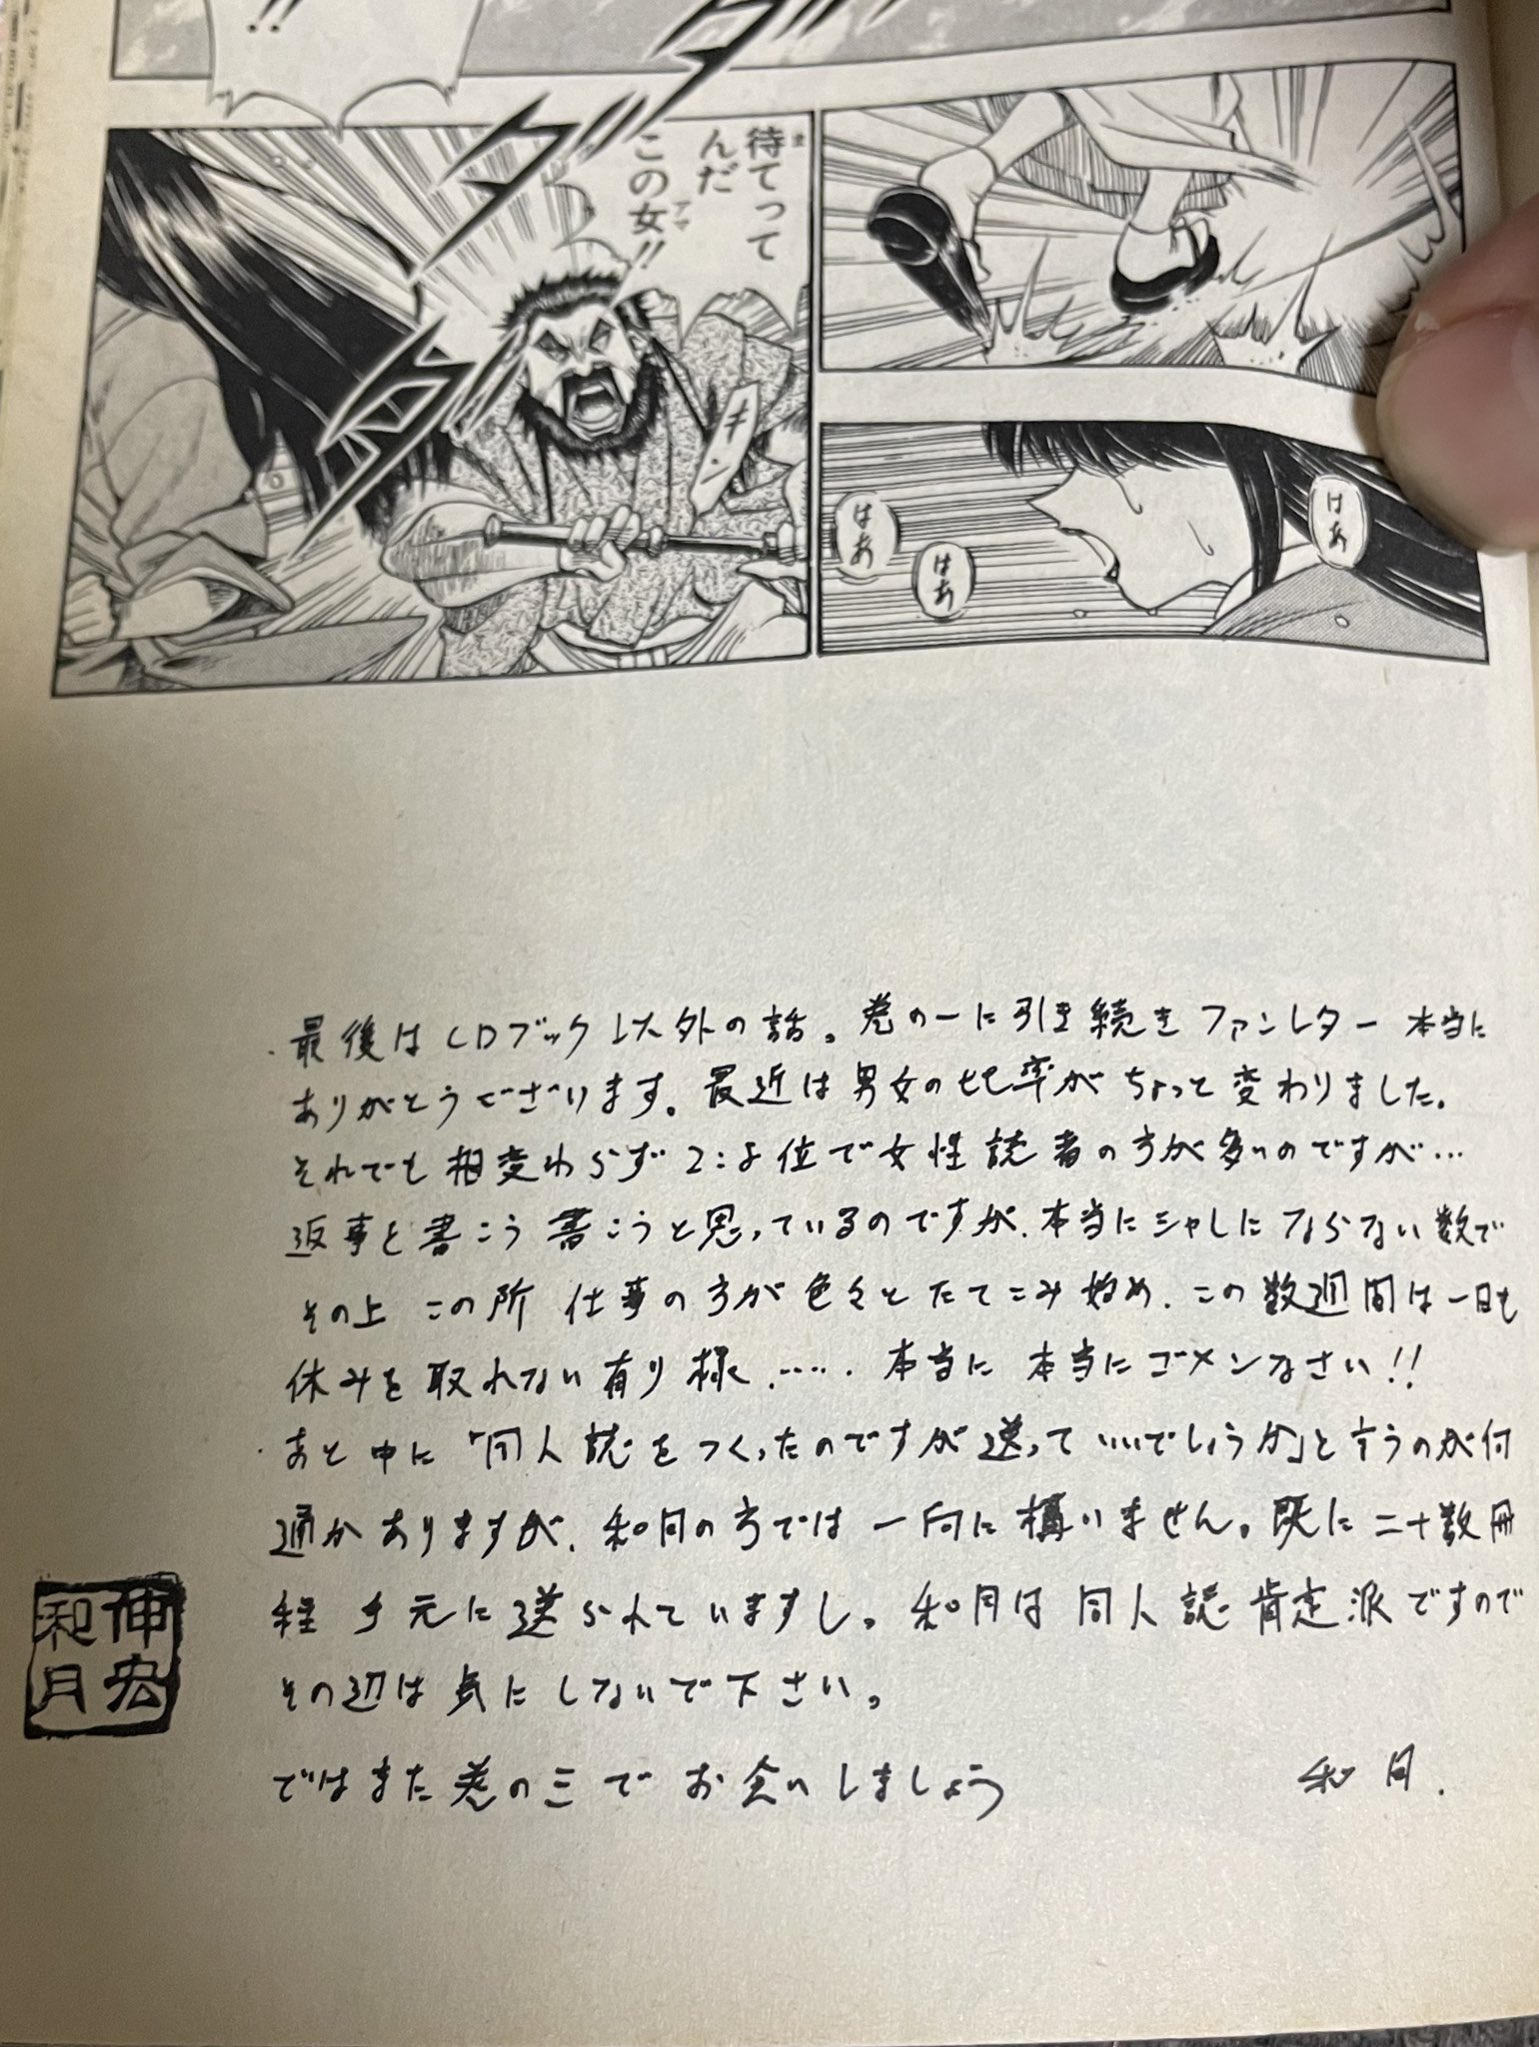 !!
ダダダダ
待てって
んだ
この女!!
キン
はあ
はあ
はあ
・最後はCDブック以外の話。巻の一に引き続きファンレター本当に
ありがとうございます。最近は男女の比率がちょっと変わりました。
それでも相変わらず2:8位で女性読者の方が多いのですが…
返事を書こう書こうと思っているのですが、本当にシャレにならない数で
その上この所仕事の方が色々とたてこみ始め、この数週間は一日も
休みを取れない有り様……。本当に本当にゴメンなさい!!
・あと中に「同人誌をつくったのですが送っていいでしょうか」と言うのが何
通かありますが、和月の方では一向に構いません。既に二十数冊
程手元に送られていますし。和月は同人誌肯定派ですので
その辺は気にしないで下さい。
ではまた巻の三でお会いしましょう
和月.
伸宏
和月